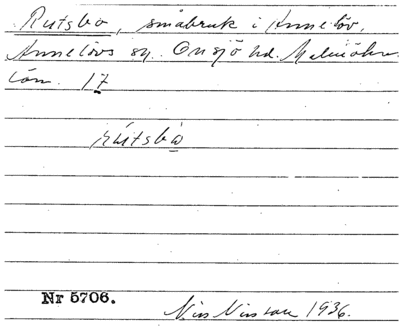 Rutsbo, småbruk i Annelöv,
Annelövs sn. Onsjö hd. Malmöhus
län. 17
rútsbo
Nr 5706.
Nils Nilsson 1936.